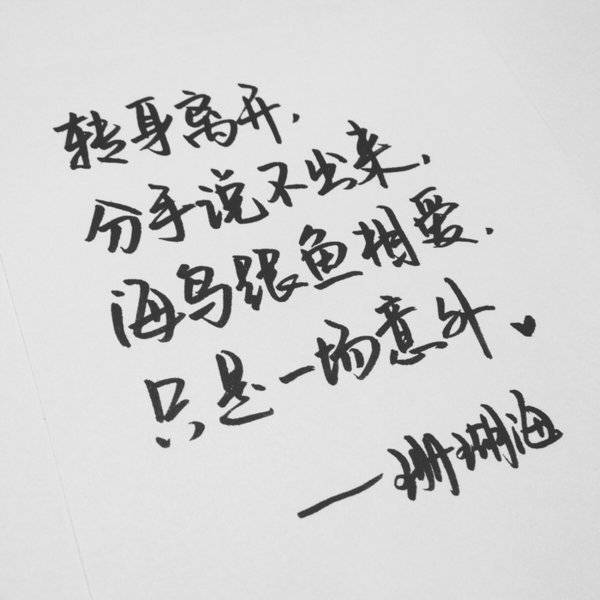 转身离开,
分手说不出来,
海鸟跟鱼相爱,
只是一场意外。
—珊瑚海